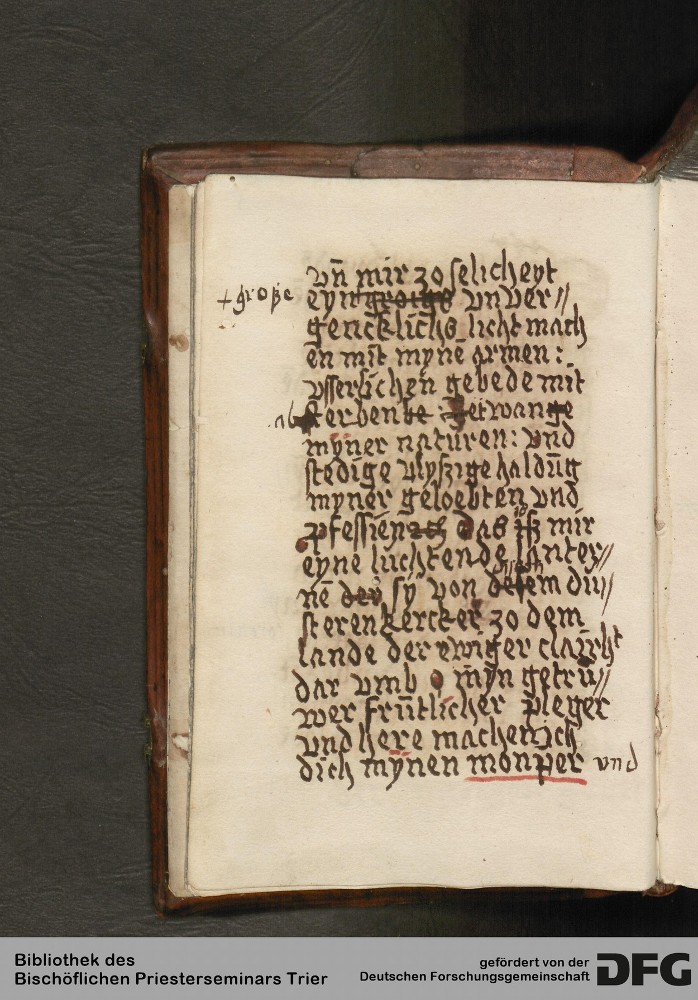 vn̄ mir zo selicheyt
+ große
eyn groiß vnver//
gencklichs licht mach
en mit mynē armen:
vsserlichen gebede mit
ab sterben be getwange
myner naturen: vnd
stedige vlyßige haldūg
myner geloebten vnd
pfessien das iß mir
eyne luchtende lanter//
nē der sy von desem du//
sterenkercker zo dem
lande der ewiger clairht
dar vmb o myn getru//
wer frūtlicher pleger
vnd here machen ich
dich mynen monper vnd
Bibliothek des
Bischöflichen Priesterseminars Trier
gefördert von der
Deutschen Forschungsgemeinschaft DFG